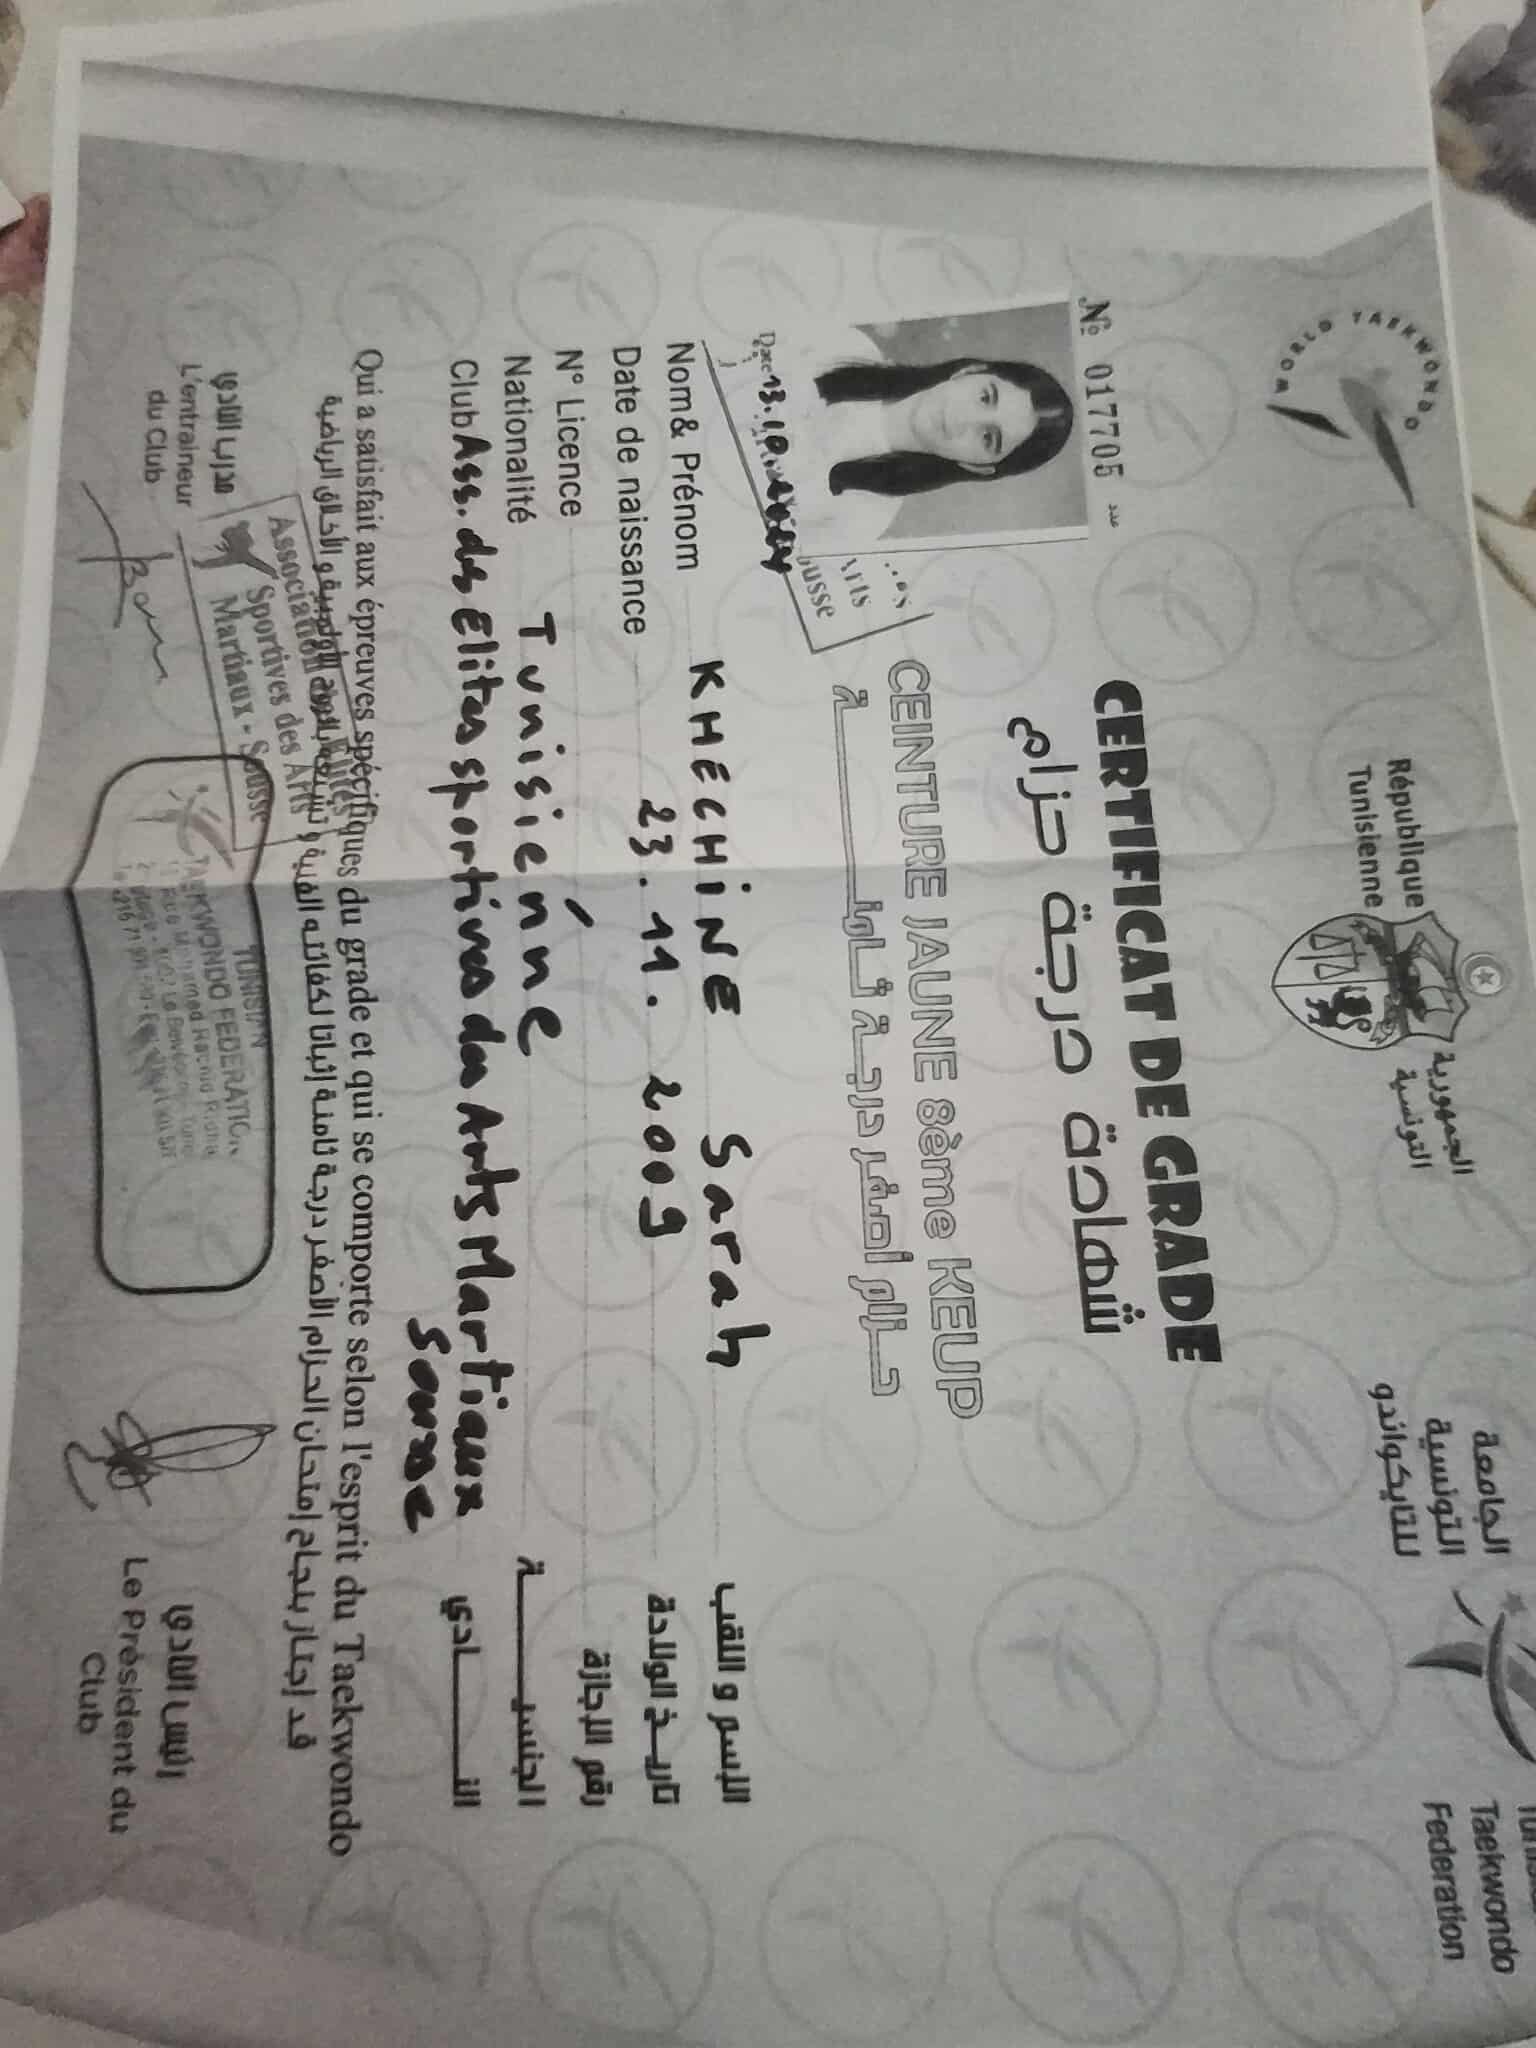 WORLD TAEKWONDO
République
Tunisienne
الجمهورية
التونسية
الجامعة
التونسية
للتايكواندو
Taekwondo
Federation
№ 017705 عدد
CERTIFICAT DE GRADE
شهادة درجة حزام
CEINTURE JAUNE 8ème KEUP
حزام أصفر درجة ثامنة
Date 13.10.
Arts
ousse
Nom& Prénom KHECHINE Sarah الإسم و اللقب
Date de naissance 23.11.2009 تاريخ الولادة
N° Licence رقم الإجازة
Nationalité Tunisienne الجنسية
Club Ass. des Elites sportives des Arts Martiaux النادي
Sousse
Qui a satisfait aux épreuves spécifiques du grade et qui se comporte selon l'esprit du Taekwondo
قد إجتاز بنجاح إمتحان الحزام الأصفر درجة ثامنة إثباتا لكفائته الفنية و تشبعه بالروح الأولمبية و الأخلاق الرياضية
مدرب النادي
L'entraineur
du Club
Association Elites
Sportives des Arts
Martiaux - Sousse
TUNISIAN
TAEKWONDO FEDERATION
رئيس النادي
Le Président du
Club